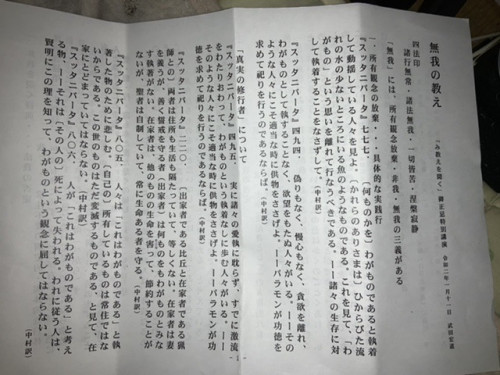 無我の教え
『み教えを聞く』御正忌特別講演 令和二年一月十一日 武田宏道
四法印
諸行無常・諸法無我・一切皆苦・涅槃寂静
「無我」には、所有観念放棄・非我・無我の三義がある
一、所有観念の放棄――具体的な実践行
『スッタニパータ』七七七、（何ものかを）わがものであると執着
して動揺している人々を見よ。（かれらのありさまは）ひからびた流
れの水の少ないところにいる魚のようなものである。これを見て、「わ
がもの」という思いを離れて行なうべきである。――諸々の生存に対
して執着することをなさずして。（中村訳）
『スッタニパータ』四九四、偽りもなく、慢心もなく、貪欲を離れ、
わがものとして執することなく、欲望をもたぬ人々がいる。――その
ような人々にこそ適当な時に供物をささげよ。――バラモンが功徳を
求めて祀りを行うのであるならば。（中村訳）
「真実の修行者」について
『スッタニパータ』四九五、実に諸々の愛執に耽らず、すでに激流
をわたりおわって、わがものという執着なしに歩む人々がいる。――
そのような人々にこそ適当な時に供物をささげよ。――バラモンが功
徳を求めて祀りを行うのであるならば。（中村訳）
『スッタニパータ』二二〇、（出家者である比丘と在家者である猟
師との）両者は住所も生活も隔たっていて、等しくない。在家者は妻
を養うが、善く誓戒を守る者（出家者）は何ものをもわがものとみな
す執着がない。在家者は、他のものの生命を害って、節約することが
ないが、聖者は自制していて、常に生命ある者を守る。（中村訳）
『スッタニパータ』八〇五、人々は「これはわがものである」と執
著した物のために悲しむ。（自己の）所有しているものは常住ではな
いからである。この世のものはただ変滅するものである、と見て、在
家にとどまっていてはならない。（中村訳）
『スッタニパータ』八〇六、人が「これはわがものである」と考え
る物、――それは（その人の）死によって失われる。われに従う人は、
賢明にこの理を知って、わがものという観念に屈してはならない。
（中村訳）